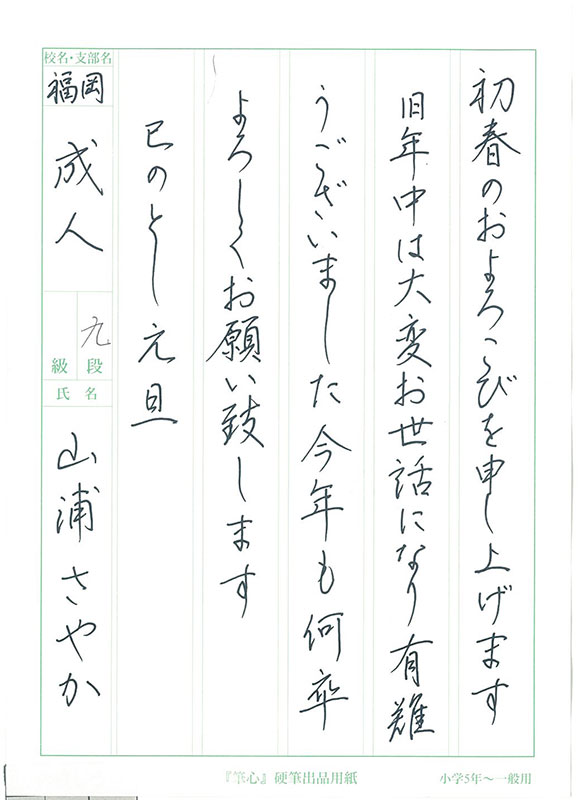 初春のおよろこびを申し上げます
旧年中は大変お世話になり有難
うございました今年も何卒
よろしくお願い致します
巳のとし元旦
校名・支部名
福岡
成人
九
段
級
氏名
山浦さやか
『筆心』硬筆出品用紙
小学5年～一般用